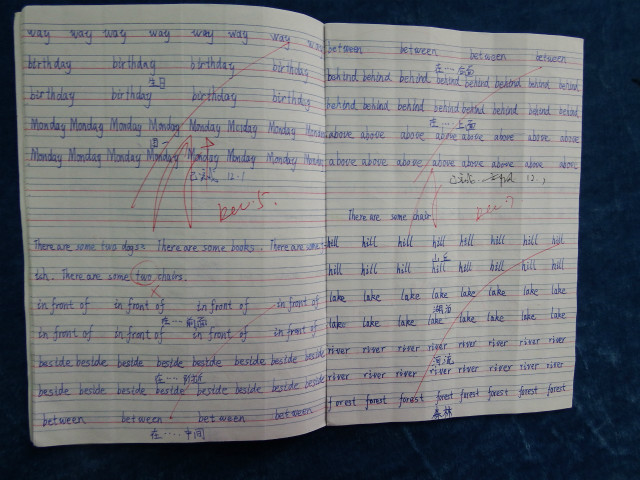 way way way way way way way way
birthday birthday birthday birthday
生日
birthday birthday birthday birthday
Monday Monday Monday Monday Monday Monday Monday Monday
周一
Monday Monday Monday Monday Monday Monday Monday Monday
12.1
Dec.5.
There are some two dogs. There are some books. There are some
ish. There are some two chairs.
in front of in front of in front of in front of
在……前面
in front of in front of in front of in front of
beside beside beside beside beside beside beside beside
在……附近
beside beside beside beside beside beside beside beside
between between between between
在……中间
between between between between
在……后面
behind behind behind behind behind behind behind behind
behind behind behind behind behind behind behind behind
在……上面
above above above above above above above above
above above above above above above above above
12,
There are some chair
Dec.7
hill hill hill hill hill hill hill hill
山丘
hill hill hill hill hill hill hill hill
lake lake lake lake lake lake lake lake
湖泊
lake lake lake lake lake lake lake lake
river river river river river river river river
河流
river river river river river river river river
forest forest forest forest forest forest forest forest
森林